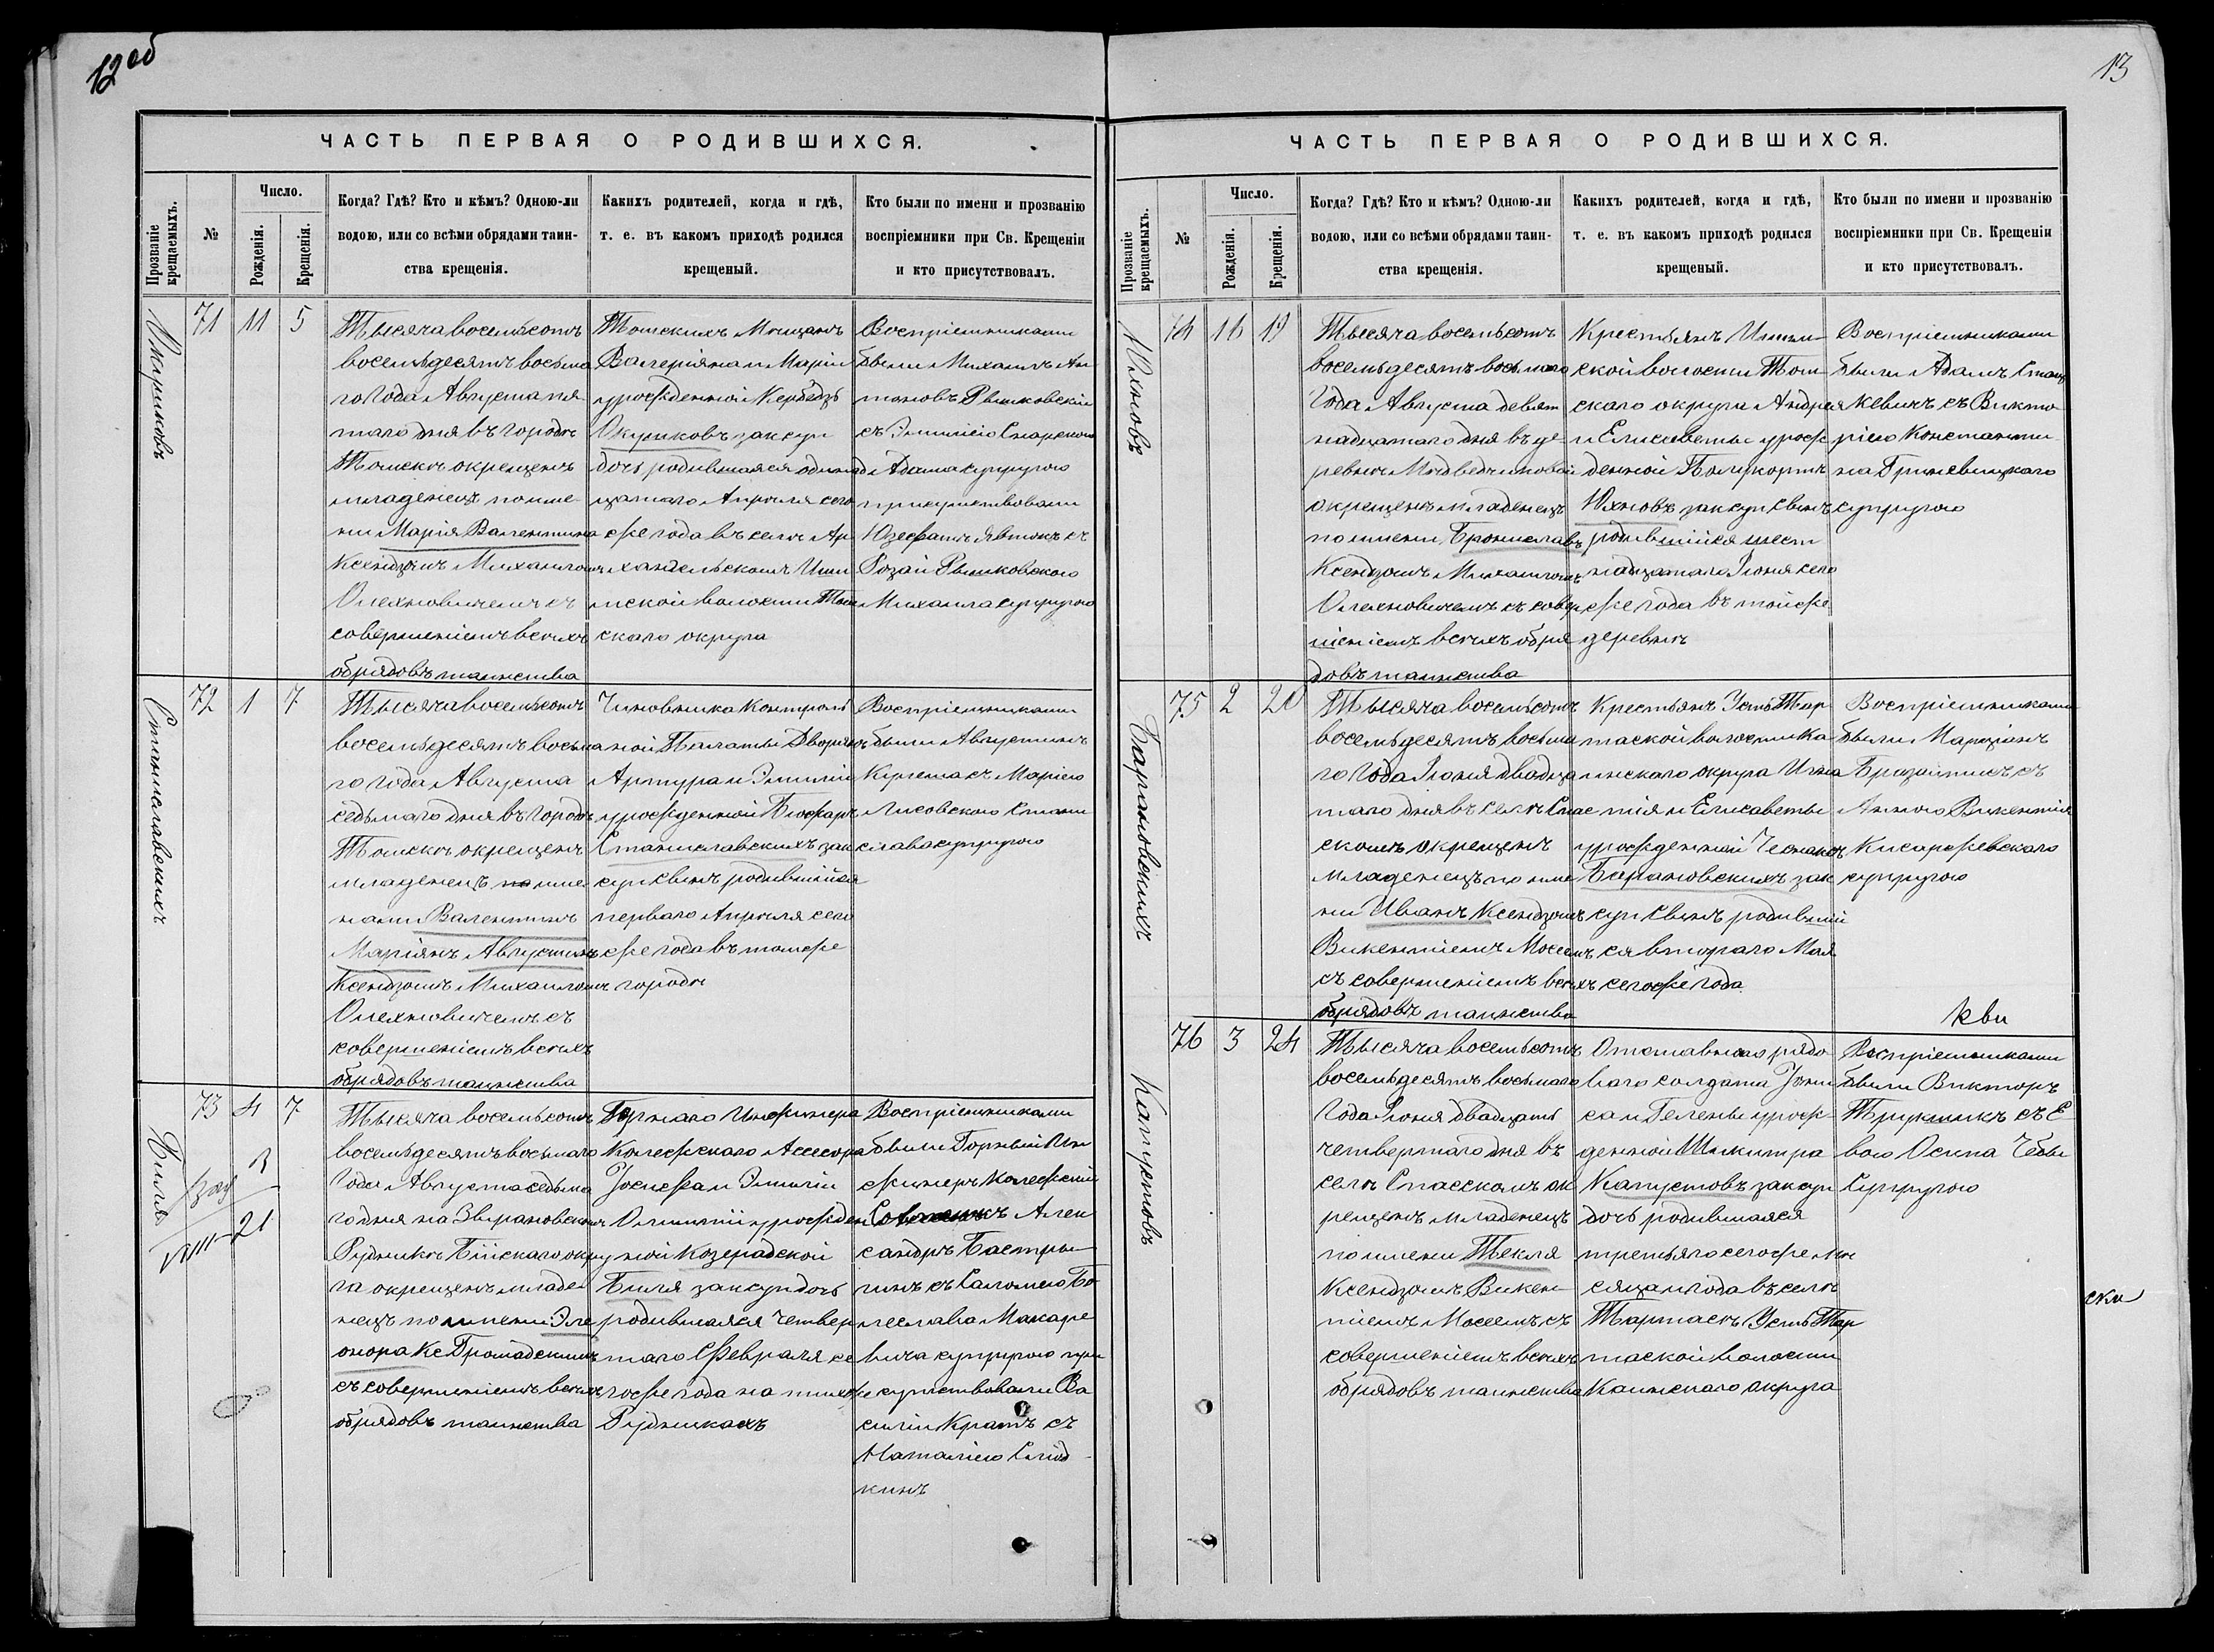 12 об
ЧАСТЬ ПЕРВАЯ О РОДИВШИХСЯ.
Прозваніе крещаемыхъ.
№
Число.
Рожденія.
Крещенія.
Когда? Гдѣ? Кто и кѣмъ? Одною-ли
водою, или со всѣми обрядами таин-
ства крещенія.
Какихъ родителей, когда и гдѣ,
т. е. въ какомъ приходѣ родился
крещеный.
Кто были по имени и прозванію
воспріемники при Св. Крещеніи
и кто присутствовалъ.
Окуриковъ
71
11
5
Тысяча восемьсотъ
восемьдесятъ восьма
го Года Августа пя
таго дня въ городѣ
Томскѣ окрещенъ
младенецъ по име
ни Марія Валентина
Ксендзомъ Михаиломъ
Олехновичемъ съ
совершеніемъ всѣхъ
обрядовъ таинства
Томскихъ Мѣщанъ
Валеріяна и Маріи
урожденной Кербедзь
законсуп
дочь родившаяся одинад
цатаго Апрѣля сего
же года въ селѣ Ар
хангельскомъ
мской волости Том
скаго округа
Воспріемниками
были Михаилъ Ан
тоновъ Рымковскій
съ Эмиліею
Адама супругою
присутствовали
съ
Розаліи Рымковскою
Михаила супругою
Станиславскихъ
72
1
7
Тысяча восемьсотъ
восемьдесятъ восьма
го Года Августа
седьмаго дня въ Городѣ
Томскѣ окрещенъ
младенецъ по име
нами Валентинъ
Маріянъ Августинъ
Ксендзомъ Михаиломъ
Олехновичемъ съ
совершеніемъ всѣхъ
обрядовъ таинства
Чиновника Контроль
ной Палаты Дворянъ
Артура и Эмиліи
урожденной
Станиславскихъ зак
суп сынъ родившійся
перваго Апрѣля сего
же года въ томже
городѣ
Воспріемниками
были Августинъ
съ Маріею
Лисовскою Стани
слава супругою
Биля
73
4
7
VIII
21
Тысяча восемьсотъ
восемьдесятъ восьмаго
Года Августа седьма
го дня на Зыряновскомъ
Рудникѣ Бійскаго окру
га окрещенъ младе
нецъ по имени Эле
онора Кс Громадскимъ
съ совершеніемъ всѣхъ
обрядовъ таинства
Горнаго Инженера
Колежскаго Ассесора
Іосифа и Эмиліи
урожден
ной Козерадской
Биля законсуп дочь
родившаяся Четвер
таго Февраля се
гоже года на тѣхже
Рудникахъ
Воспріемниками
были Горный Ин
женеръ Колежскій
Алек
сандръ Бастры
гинъ съ Саломею Бо
леслава Макаре
вича супругою при
сутствовали Ва
силіи Кратъ съ
Наталіею
кинъ
13
ЧАСТЬ ПЕРВАЯ О РОДИВШИХСЯ.
Прозваніе крещаемыхъ.
№
Число.
Рожденія.
Крещенія.
Когда? Гдѣ? Кто и кѣмъ? Одною-ли
водою, или со всѣми обрядами таин-
ства крещенія.
Какихъ родителей, когда и гдѣ,
т. е. въ какомъ приходѣ родился
крещеный.
Кто были по имени и прозванію
воспріемники при Св. Крещеніи
и кто присутствовалъ.
Юхновъ
74
16
19
Тысяча восемьсотъ
восемьдесятъ восьмаго
Года Августа девят
надцатаго дня въ де
ревнѣ Медведчиковой
окрещенъ младенецъ
по имени Брониславъ
Ксендзомъ Михаиломъ
Олехновичемъ съ совер
шеніемъ всѣхъ обря
довъ таинства
Крестьянъ Ишим-
ской волости Том-
скаго округа Андрея
и Елисаветы урож
денной
Юхновъ законсуп сынъ
родившійся шест
надцатаго Іюня сего
же года въ тойже
деревнѣ
Воспріемниками
были Адамъ Стан
кевичъ съ Викто
ріею Константи
на Гриневицкаго
супругою
Барановскихъ
75
2
20
Тысяча восемьсотъ
восемьдесятъ восьма
го Года Іюня двадца
таго дня въ селѣ Спас
скомъ окрещенъ
младенецъ по име
ни Иванъ Ксендзомъ
Викентіемъ
съ совершеніемъ всѣхъ
обрядовъ таинства
Крестьянъ Усть Тар
таской волости Ка
инскаго округа Игна
тія и Елисаветы
урожденной
Барановскихъ зак
суп сынъ родивший
ся втораго Мая
сегоже года
Воспріемниками
были Марціянъ
съ
Анною Викентія
супругою
кви
Капустовъ
76
3
24
Тысяча восемьсотъ
восемьдесятъ восьмаго
Года Іюня двадцать
четвертаго дня въ
селѣ Спасскомъ ок
рещенъ младенецъ
по имени Текля
Ксендзомъ Викен
тіемъ съ
совершеніемъ всѣхъ
обрядовъ таинства
Отставнаго рядо
ваго солдата
са и Гелены урож-
денной
Капустовъ законсуп
дочь родившаяся
третьяго сегоже мѣ
сяца и года въ селѣ
Тартаскъ Усть Тар
таской волости
Каинскаго округа
Воспріемниками
были Викторъ
съ Е
вою Осипа
Супругою
ски